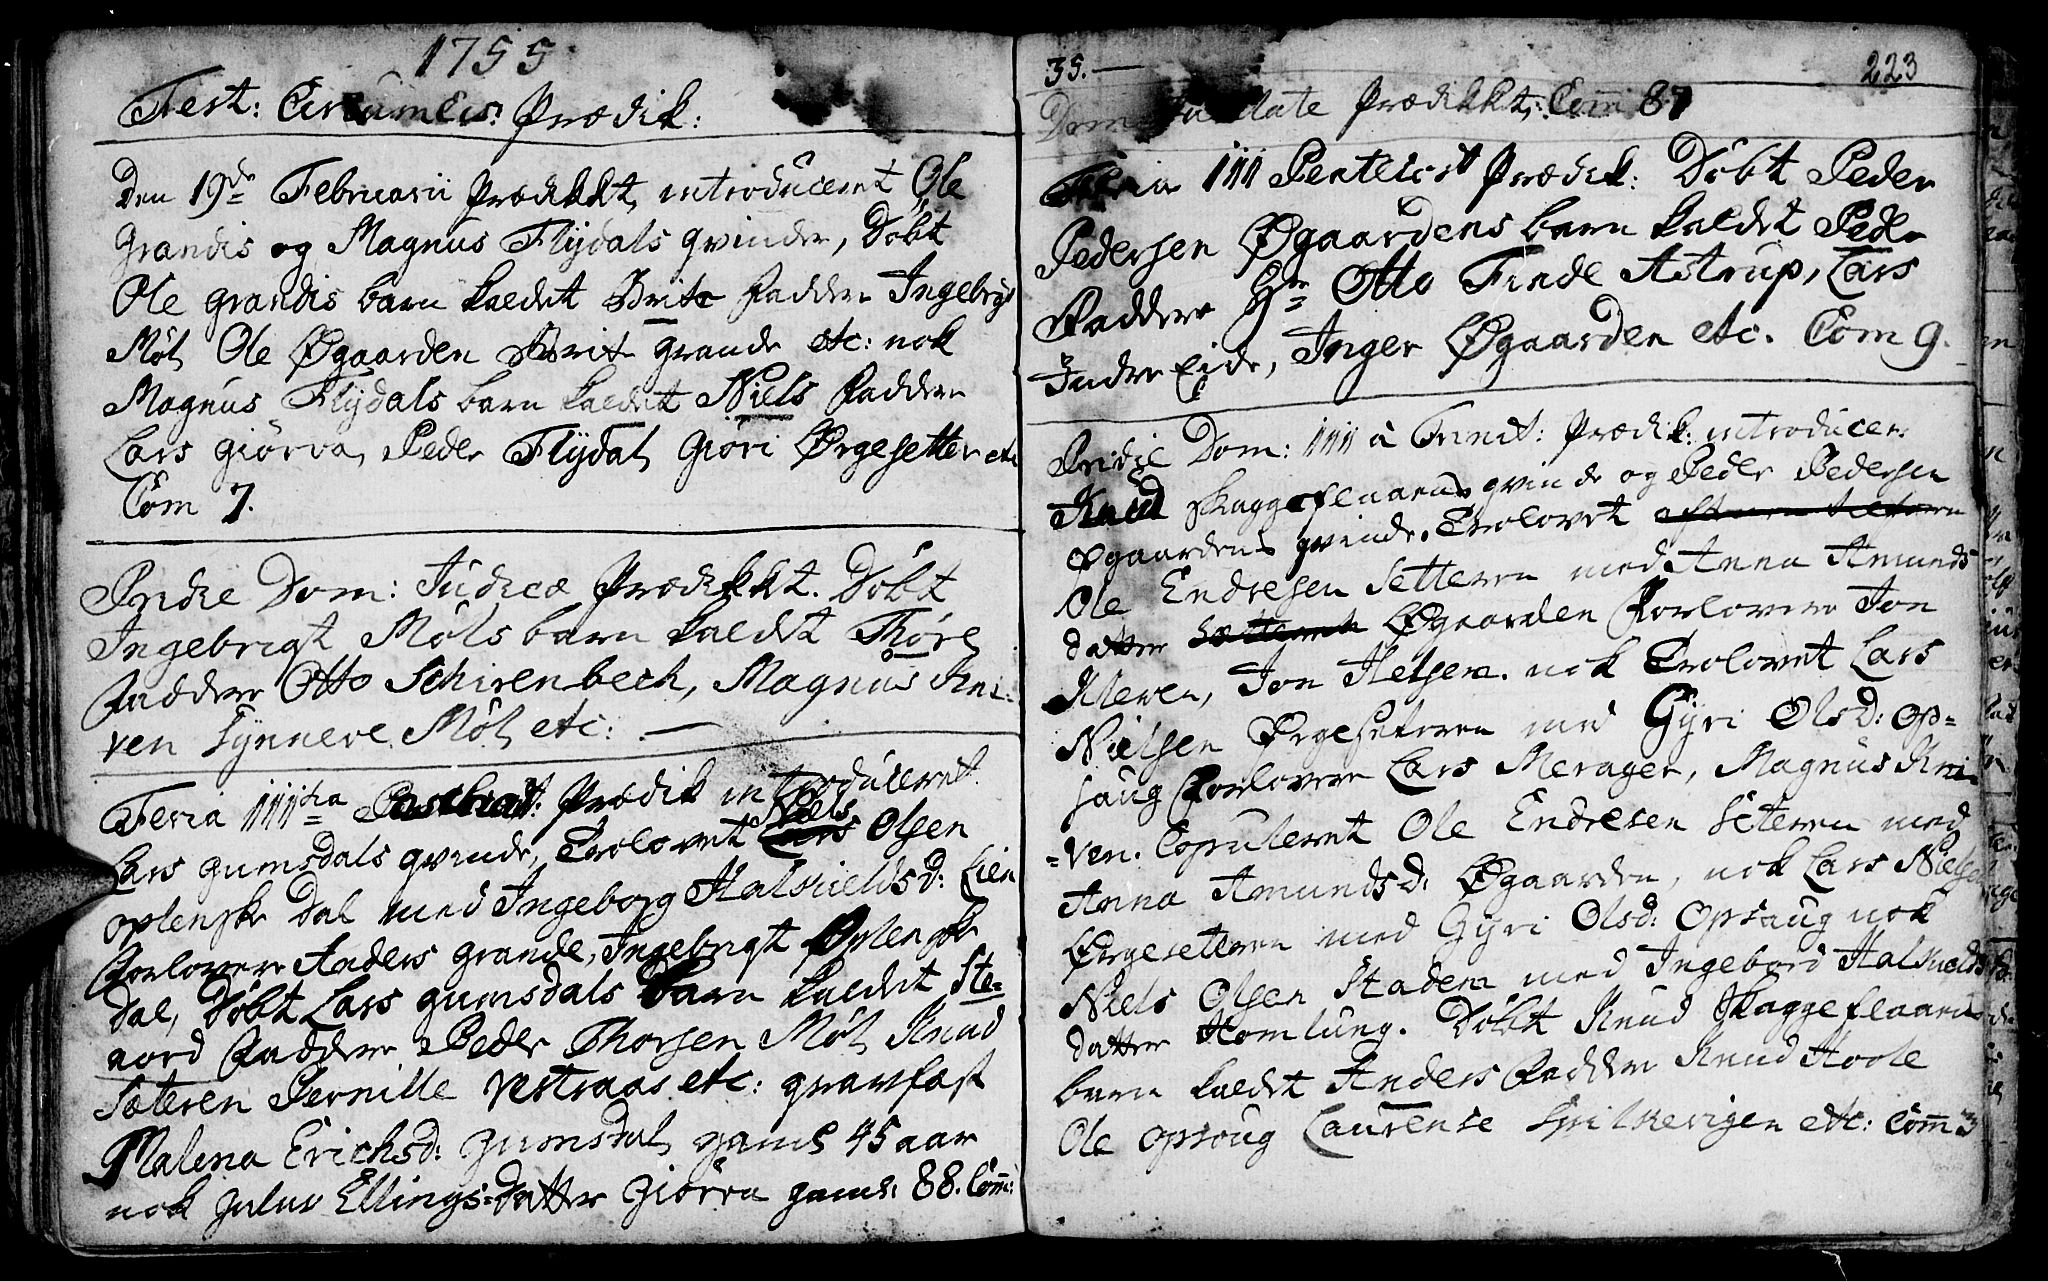 1755
Fest: Circumcis: Prædik:
Den 19de Februarii Prædikkt, introduceret Ole
Grandis og Magnus Flÿdals qvinder, Døbt
Ole Grandis barn kaldet Brite Faddere Ingebrigt
Møl, Ole Øgaarden Brite Grande etc: nok
Magnus Flÿdals barn kaldet Niels Faddere
Lars Giørva, Peder Flÿdal, Giøri Ørgesetter etc
Com 7.
Pridie Dom: Judicæ Prædikkt. Døbt
Ingebrigt Møls barn kaldet Thøre
Faddere Otto Schirenbeck, Magnus Kni-
ven Synneve Møl, etc: —
Feria IIIItia Paschat: Prædik introduceret
Niels
Lars Gumsdals qvinde, Trolovet Lars Olsen
oplenske Dal med Ingeborg Halkieldsd: Lien
Forlovere Anders Grande, Ingebrigt Oplenske
dal, Døbt Lars Gumsdals barn kaldet Ste-
nord Faddere Peder Thorsen Møl, Knud
Sæteren Pernille Vestraas etc: gravfæst
Malena Erichsd: Gumsdal, gaml 45 aar
nok Ellings-datter Giørva gaml: 88. Com:
35. —
223
Dom Prædikkt: Com 87
Feria IIII Pentecost Prædik: Døbt Peder
Pedersen Øgaardens barn kaldet Peder
Faddere Hr Otto Finde Astrup, Lars
Indre Eide, Inger Øgaarden etc. Com 9.
Pridie Dom: IIII à Trinit: Prædik: introducer:
Knud Skaggeflaarens qvinde og Peder Pedersen
Øgaardens qvinde. Trolovet
Ole Endresen Setteren med Anna Amunds
datter Øgaarden Forlovere Jon
Kleven, Jon Helsem. nok Trolovet Lars
Nielsen Ørgeseteren med Gÿri Olsd: op-
saug Forlovere Lars Merager, Magnus Kni-
-ven. Copuleret Ole Endresen Seteren med
Anna Amundsd: Øgaarden, nok Lars Nielsen
Ørgeseteren med Gÿri Olsd: Opsaug nok
Niels Olsen Staden med Ingebord Halkields
datter Homlung. Døbt Knud Skaggeflaarens
barn kaldet Anders Faddere Knud Hoole
Ole opsoug Laurense Spilkevigen etc: Com 3